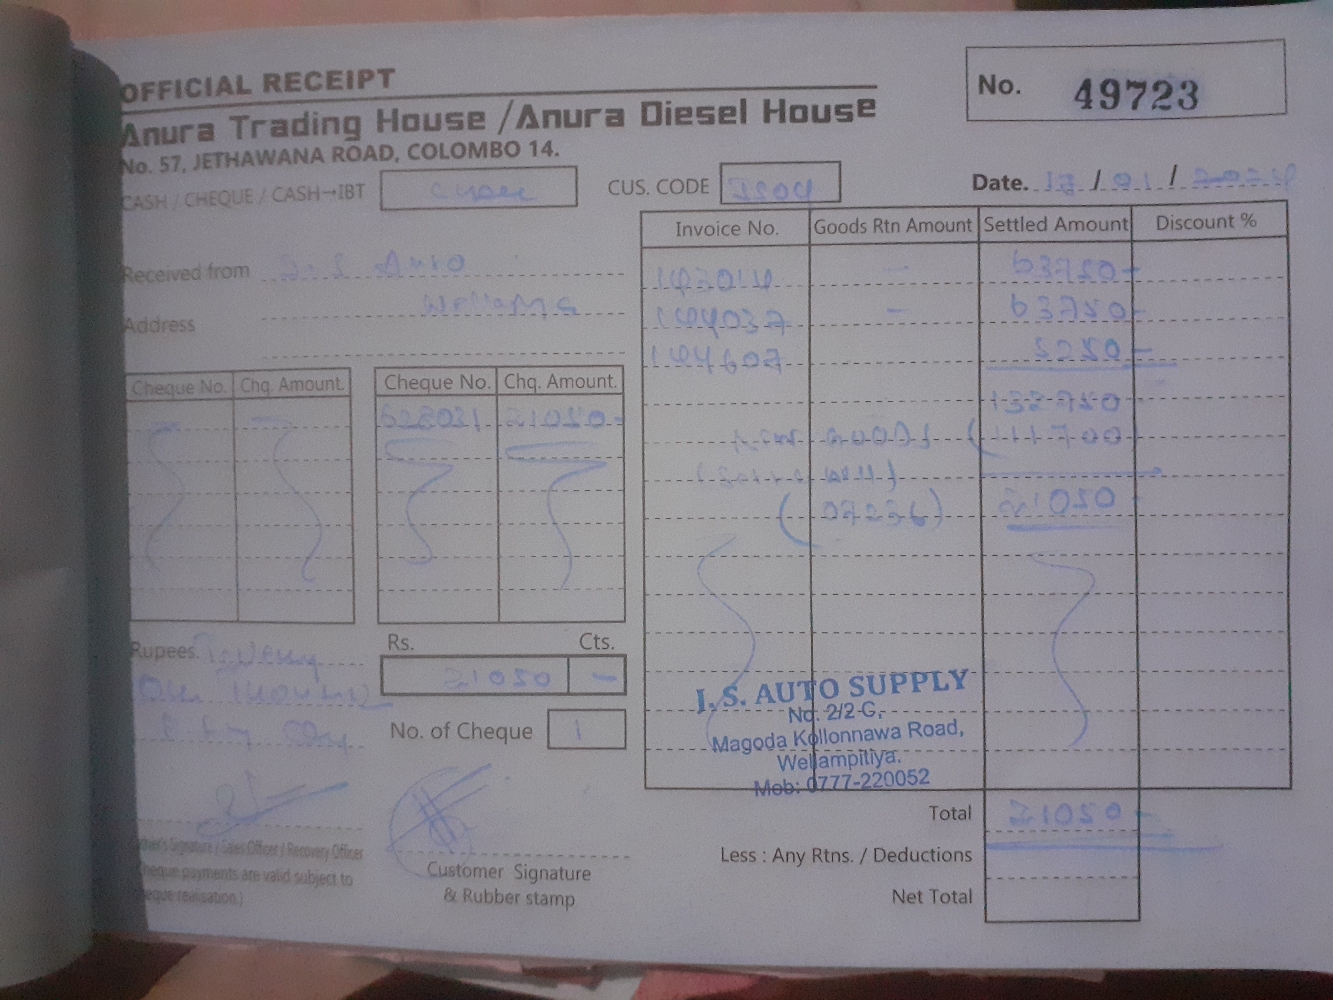 OFFICIAL RECEIPT
Anura Trading House /Anura Diesel House
No. 57, JETHAWANA ROAD, COLOMBO 14.
No. 49723
CASH / CHEQUE / CASH→IBT
CUS. CODE JS04
Date. / 01 / 2024
Received from J.S Auto
Address
Invoice No. Goods Rtn Amount Settled Amount Discount %
143014 - 63750-
144037 - 63750-
144607 5250-
132750-
GOODS (111700)
(07236) 21050
Cheque No. Chq. Amount.
Cheque No. Chq. Amount.
628031 21050-
Rupees. Twenty
One Thousand
Fifty Only
Rs. Cts.
21050 -
No. of Cheque 1
J. S. AUTO SUPPLY
No. 2/2-G,
Magoda Kollonnawa Road,
Wellampitiya.
Mob: 0777-220052
Total 21050-
Less : Any Rtns. / Deductions
Net Total
Signature / Sales Officer / Recovery Officer
payments are valid subject to
realisation.)
Customer Signature
& Rubber stamp